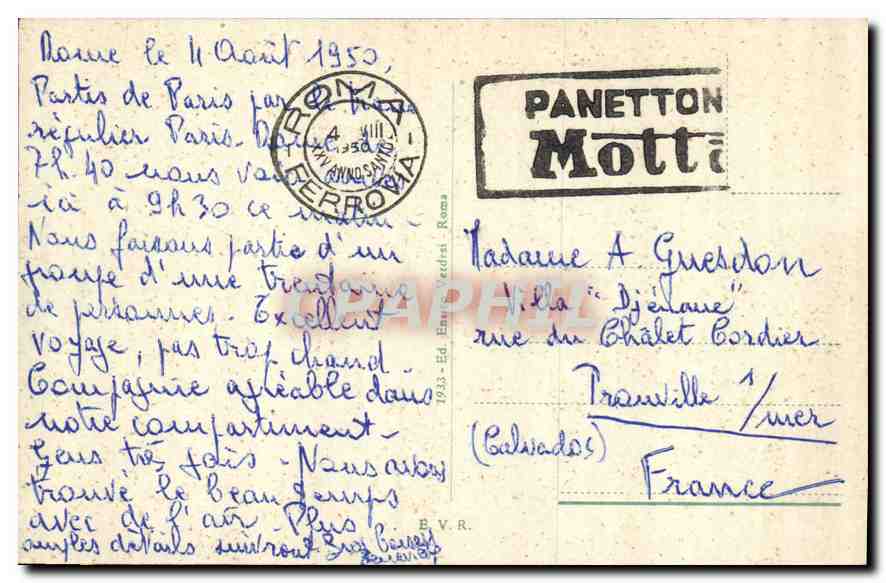 Rome le 4 Août 1950,
Partis de Paris par le train
régulier Paris-Rome de
7h.40 nous
ici à 9h30 ce matin-
Nous faisons partie d'un
groupe d'une trentaine
de personnes. Excellent
voyage, pas trop chaud
Compagnie agréable dans
notre compartiment-
Gens très gais - Nous avons
trouvé le beau temps
avec de l'air. Plus
amples détails suivront Gros baisers
ROMA FERROVIA
4 VIII
1950
XXV ANNO SANTO
PANETTON
Motta
1933 - Ed. Enrico Verdesi - Roma
CPAPHIL
Madame A Guesdon
Villa "Djénane"
rue du Châlet Cordier
s/mer
(Calvados)
France
E.V.R.